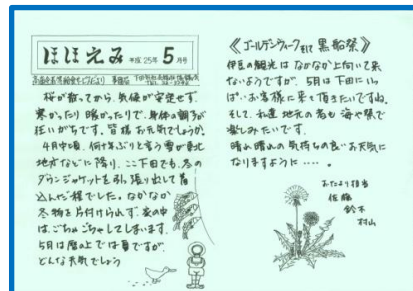 ほほえみ 平成25年 5月号
桜が散ってから、気候が安定せず、
寒かったり暖かったりで、身体の調子が
狂いがちです。皆様お元気でしょうか。
4月中頃、何十年ぶりと言う雪が東北
地方などに降り、ここ下田でも、冬の
ダウンジャケットを引っ張り出して着
込んだ程でした。なかなか
冬物を片付けられず、家の中
は、ごちゃごちゃしてしまいます。
5月は暦の上では夏ですが、
どんな天気でしょう
《ゴールデンウィークそして黒船祭》
伊豆の観光はなかなか上向いて来
ないようですが、5月は下田にいっ
ぱいお客様に来て頂きたいですね。
そして、私達地元の者も海や祭で
楽しみたいです。
晴れ晴れの気持ちの良いお天気に
なりますように‥‥。
おたより担当
佐藤
鈴木
村山